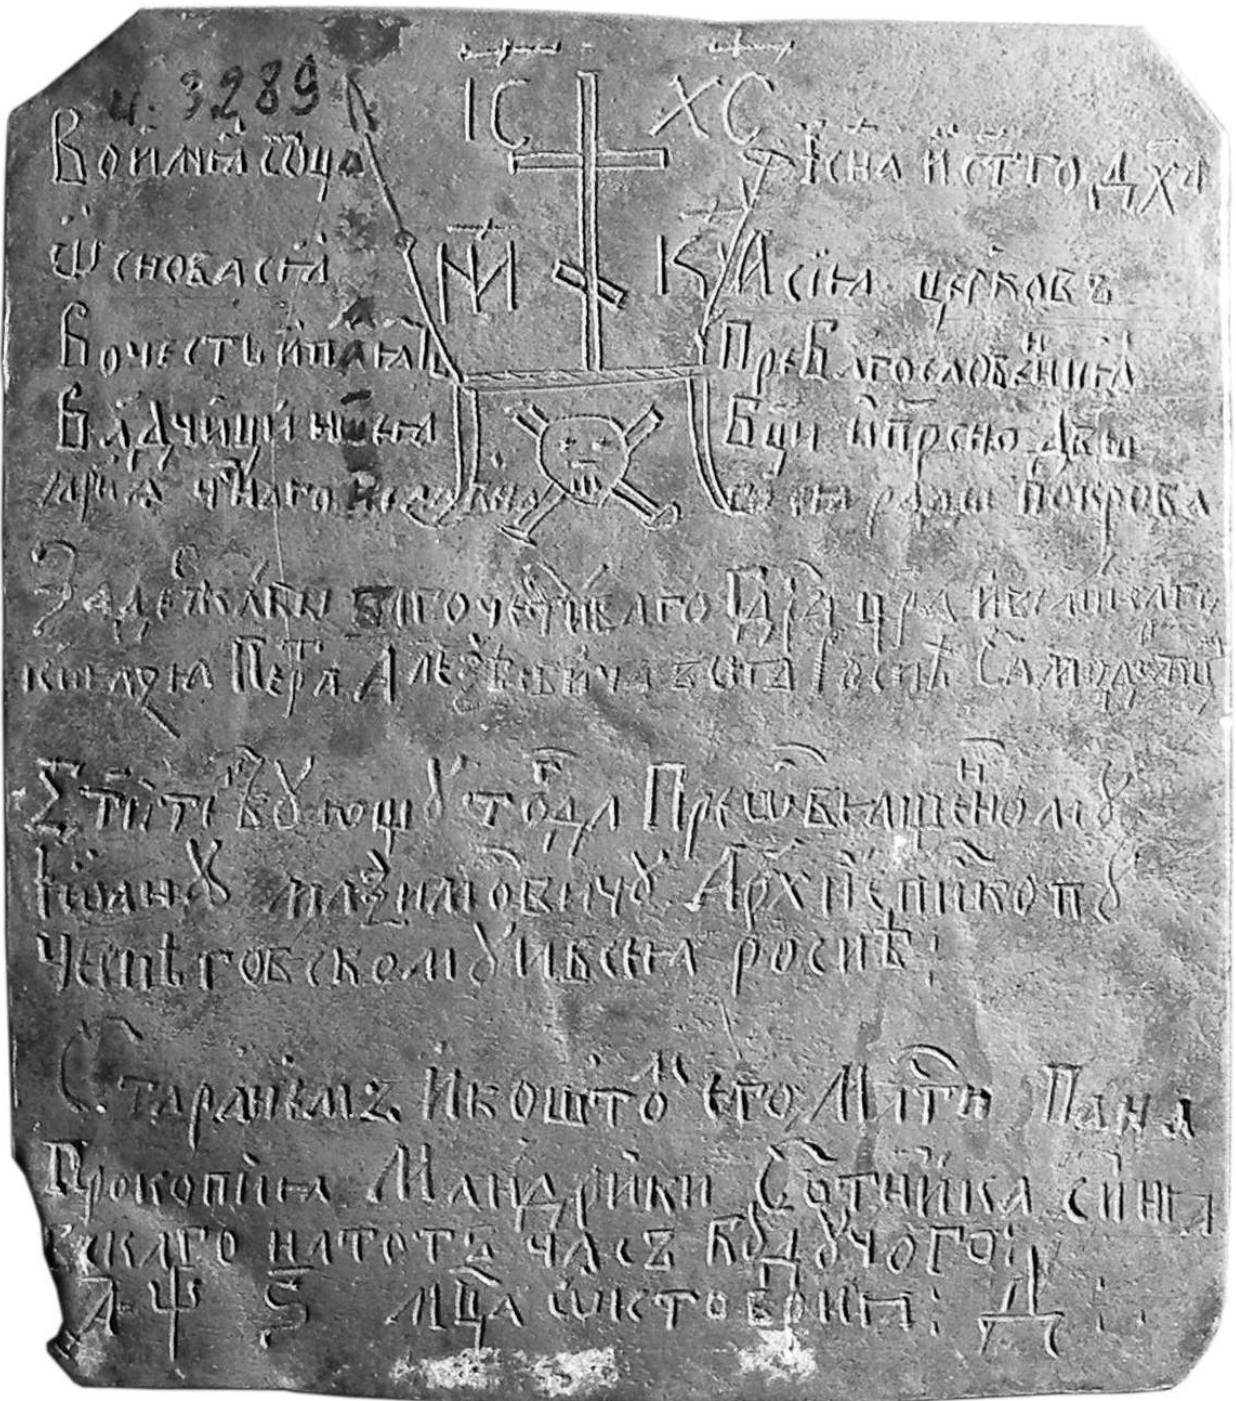 и. 3289
ІС ХС
Во имѧ ѿца и сна и стго дхѧ
ѿсновасѧ НИ КА сіѧ церковъ
Вочесть Преблагословенніѧ
Влдчици нашеѧ Бци и прсно двы
чтнаго ради Покрова
За держави блгочестиваго Гдрѧ црѧ и великаго
кнѧзѧ Петра Алеѯѣевича всеѧ Росиѣ Самодержц
Стителствующу тогда Преѡсвѧщенному
Іѡанну маѯимовичу Архиепископу
Чернѣговскому и всеѧ росиѣ:
Стараніемъ и коштомъ его Млти Пана
Прокопіѧ Мандрики Сотника сінѧ
вскаго натотъ часъ будучого:
҂АѰ Ѕ мцѧ ѡктовриѧ: Д :